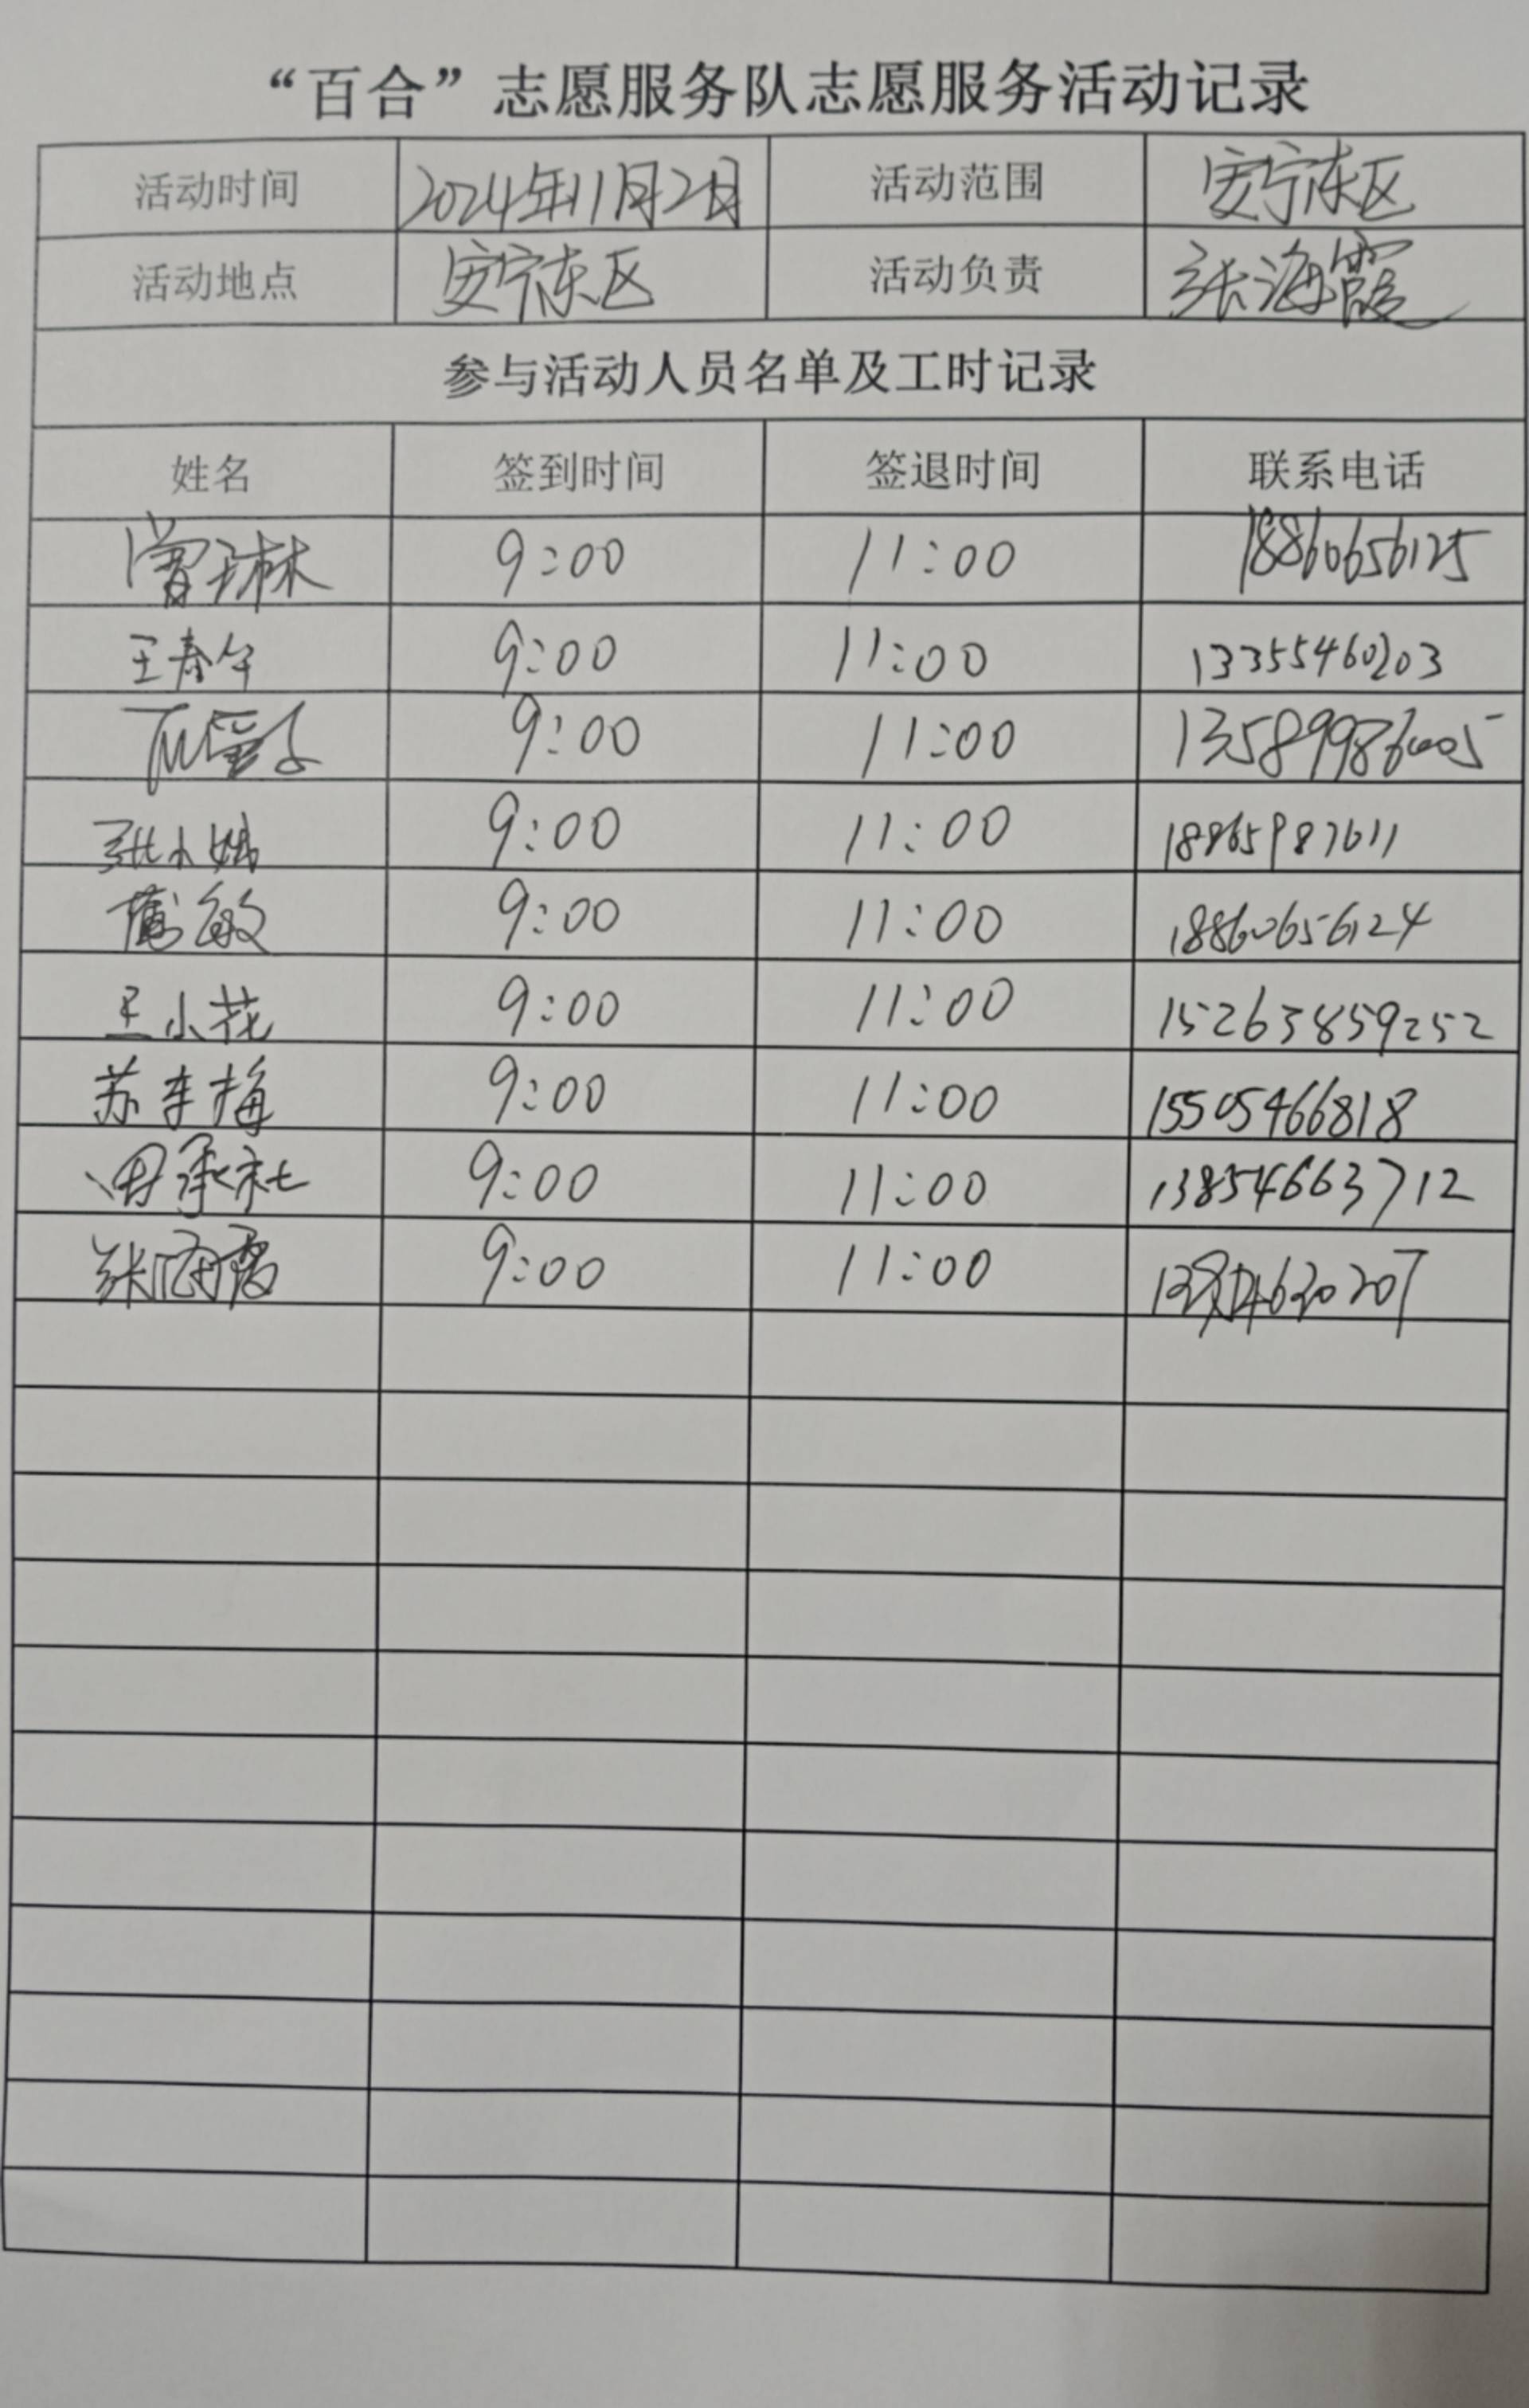 “百合”志愿服务队志愿服务活动记录
活动时间 2024年11月2日 活动范围 安宁东区
活动地点 安宁东区 活动负责 张海霞
参与活动人员名单及工时记录
姓名 签到时间 签退时间 联系电话
9:00 11:00 18860656125
王春午 9:00 11:00 13355460203
9:00 11:00
张小娥 9:00 11:00 18865987611
敏 9:00 11:00 18860656124
王小花 9:00 11:00 15263859252
苏冬梅 9:00 11:00 15505466818
田承社 9:00 11:00 13854663712
张海霞 9:00 11:00